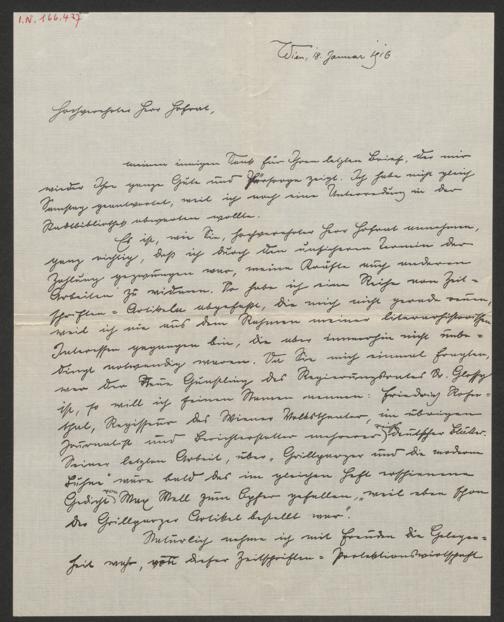 I.N. 166.437
Wien, 18. Januar 1916
Hochverehrter Herr Hofrat,
meinen innigen Dank für Ihren letzten Brief, der mir
wieder Ihre ganze Güte und Fürsorge zeigt. Ich habe nicht gleich
Samstag geantwortet, weil ich noch eine Unterredung in der
Stadtbibliothek abwarten wollte.
Es ist, wie Sie, hochverehrter Herr Hofrat annehmen,
ganz richtig, daß ich durch den unsicheren Termin der
Zahlung gezwungen war, meine Kräfte auch anderen
Arbeiten zu widmen. So habe ich eine Reihe von Zeit-
schriften-Artikeln abgefaßt, die mich nicht gerade reuen,
weil ich nie aus dem Rahmen meiner literarhistorischen
Interessen gegangen bin, die aber immerhin nicht unbe-
dingt notwendig waren. Da Sie mich einmal fragten,
wer der neue Günstling des Regierungsrates Dr. Glossy
ist, so will ich seinen Namen nennen: Friedrich Rosen-
thal, Regisseur des Wiener Volkstheater, im übrigen
Journalist und Berichterstatter mehrerer deutscher Blätter.
Seiner letzten Arbeit, über „Grillparzer und die moderne
Bühne" wäre bald das im gleichen Heft erschienene
Gedicht von Max Mell zum Opfer gefallen, „weil eben schon
der Grillparzer Artikel bestellt war".
Natürlich nehme ich mit Freuden die Gelegen-
heit wahr, dieser Zeitschriften-Protektionswirtschaft